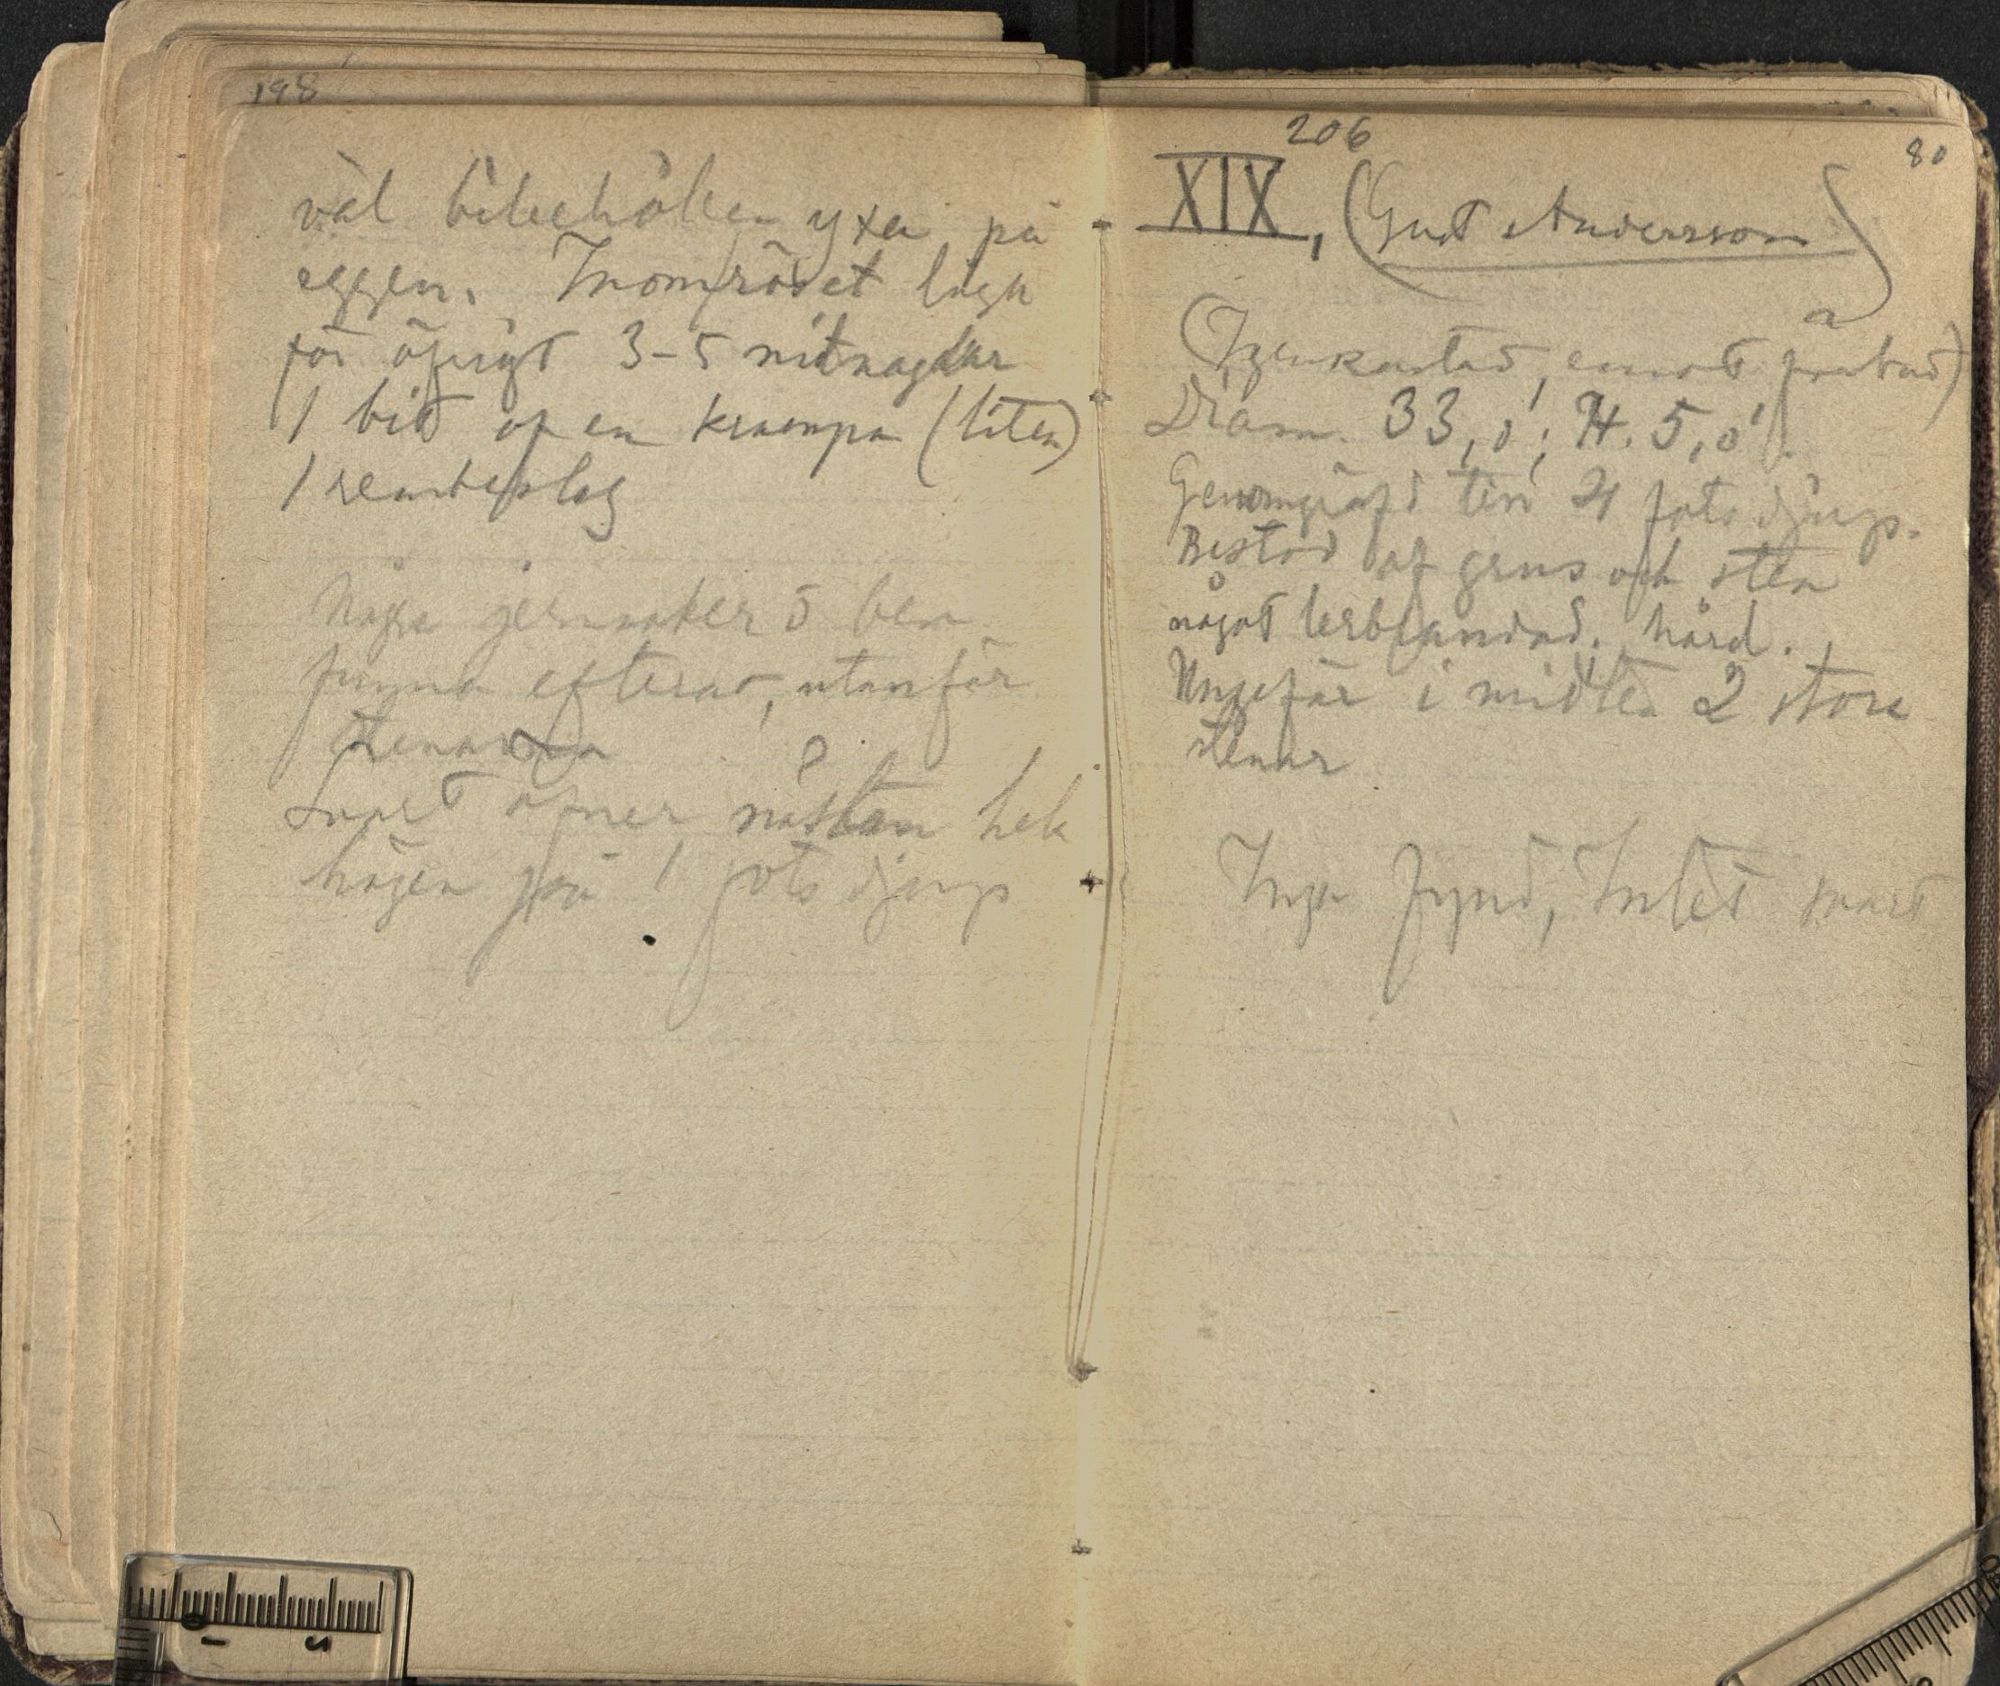 198
väl bibehållen yxa på
eggen. Inom röset låga
för öfrigt 3-5 nitnaglar
1 bit af en krampa (liten)
1 rembeslag
Några jernsaker o ben
funna efteråt, utanför
stenarna
Svart öfver nästan hela
högen på 1 fots djup
206
80
XIX, (Gust Andersson)
(Igenkastad,
Diam. 33,0'; H. 5,0'.
Genomgräfd till 4 fots djup.
Bestod af grus och sten
något lerblandad. hård.
Ungefär i midten 2 stora
stenar
Inga fynd, Intet svart